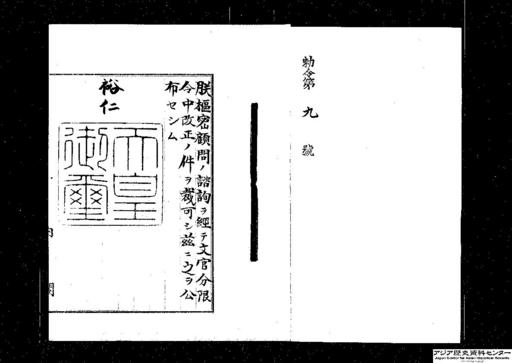 勅令第九號
朕樞密顧問ノ諮詢ヲ經テ文官分限
令中改正ノ件ヲ裁可シ茲ニ之ヲ公
布セシム
裕仁
天皇御璽
アジア歴史資料センター
Japan Center for Asian Historical Records